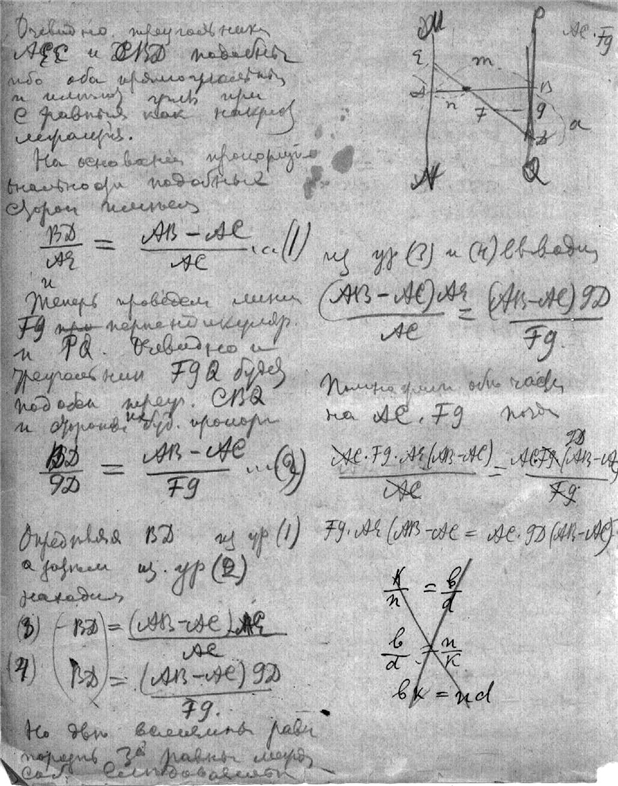 Очевидно треугольники
AEC и CBD подобны
ибо оба прямоугольны
и имеют углы при
C равные как накрест
лежащие.
На основании пропорцио
нальности подобных
сторон имеем
BD/AE = AB-AC/AC ... (1)
Теперь проведем линию
Fg перпендикуляр.
к PQ. Очевидно и
треугольник FgD будет
подобен треуг. CBD
и стороны буд. пропорц
BD/gD = AB-AC/Fg ... (2)
Определяя BD из ур (1)
а затем из ур (2)
находим
(3) BD = (AB-AC) AE/AC
(4) BD = (AB-AC) gD/Fg.
Но две величины равн
порознь 3й равны между
соб. Следовательно
M
P
AC·Fg
E
m
A
B
n
F
g
D
a
N
Q
из ур (3) и (4) выводим
(AB-AC)AE/AC = (AB-AC)gD/Fg.
обе части
на AC.Fg
AC·Fg·AE(AB-AC)/AC = AC·Fg·gD(AB-A/Fg
Fg·AE(AB-AC = AC·gD(AB-AC)
k/n = b/d
b/d = n/k
bk = nd